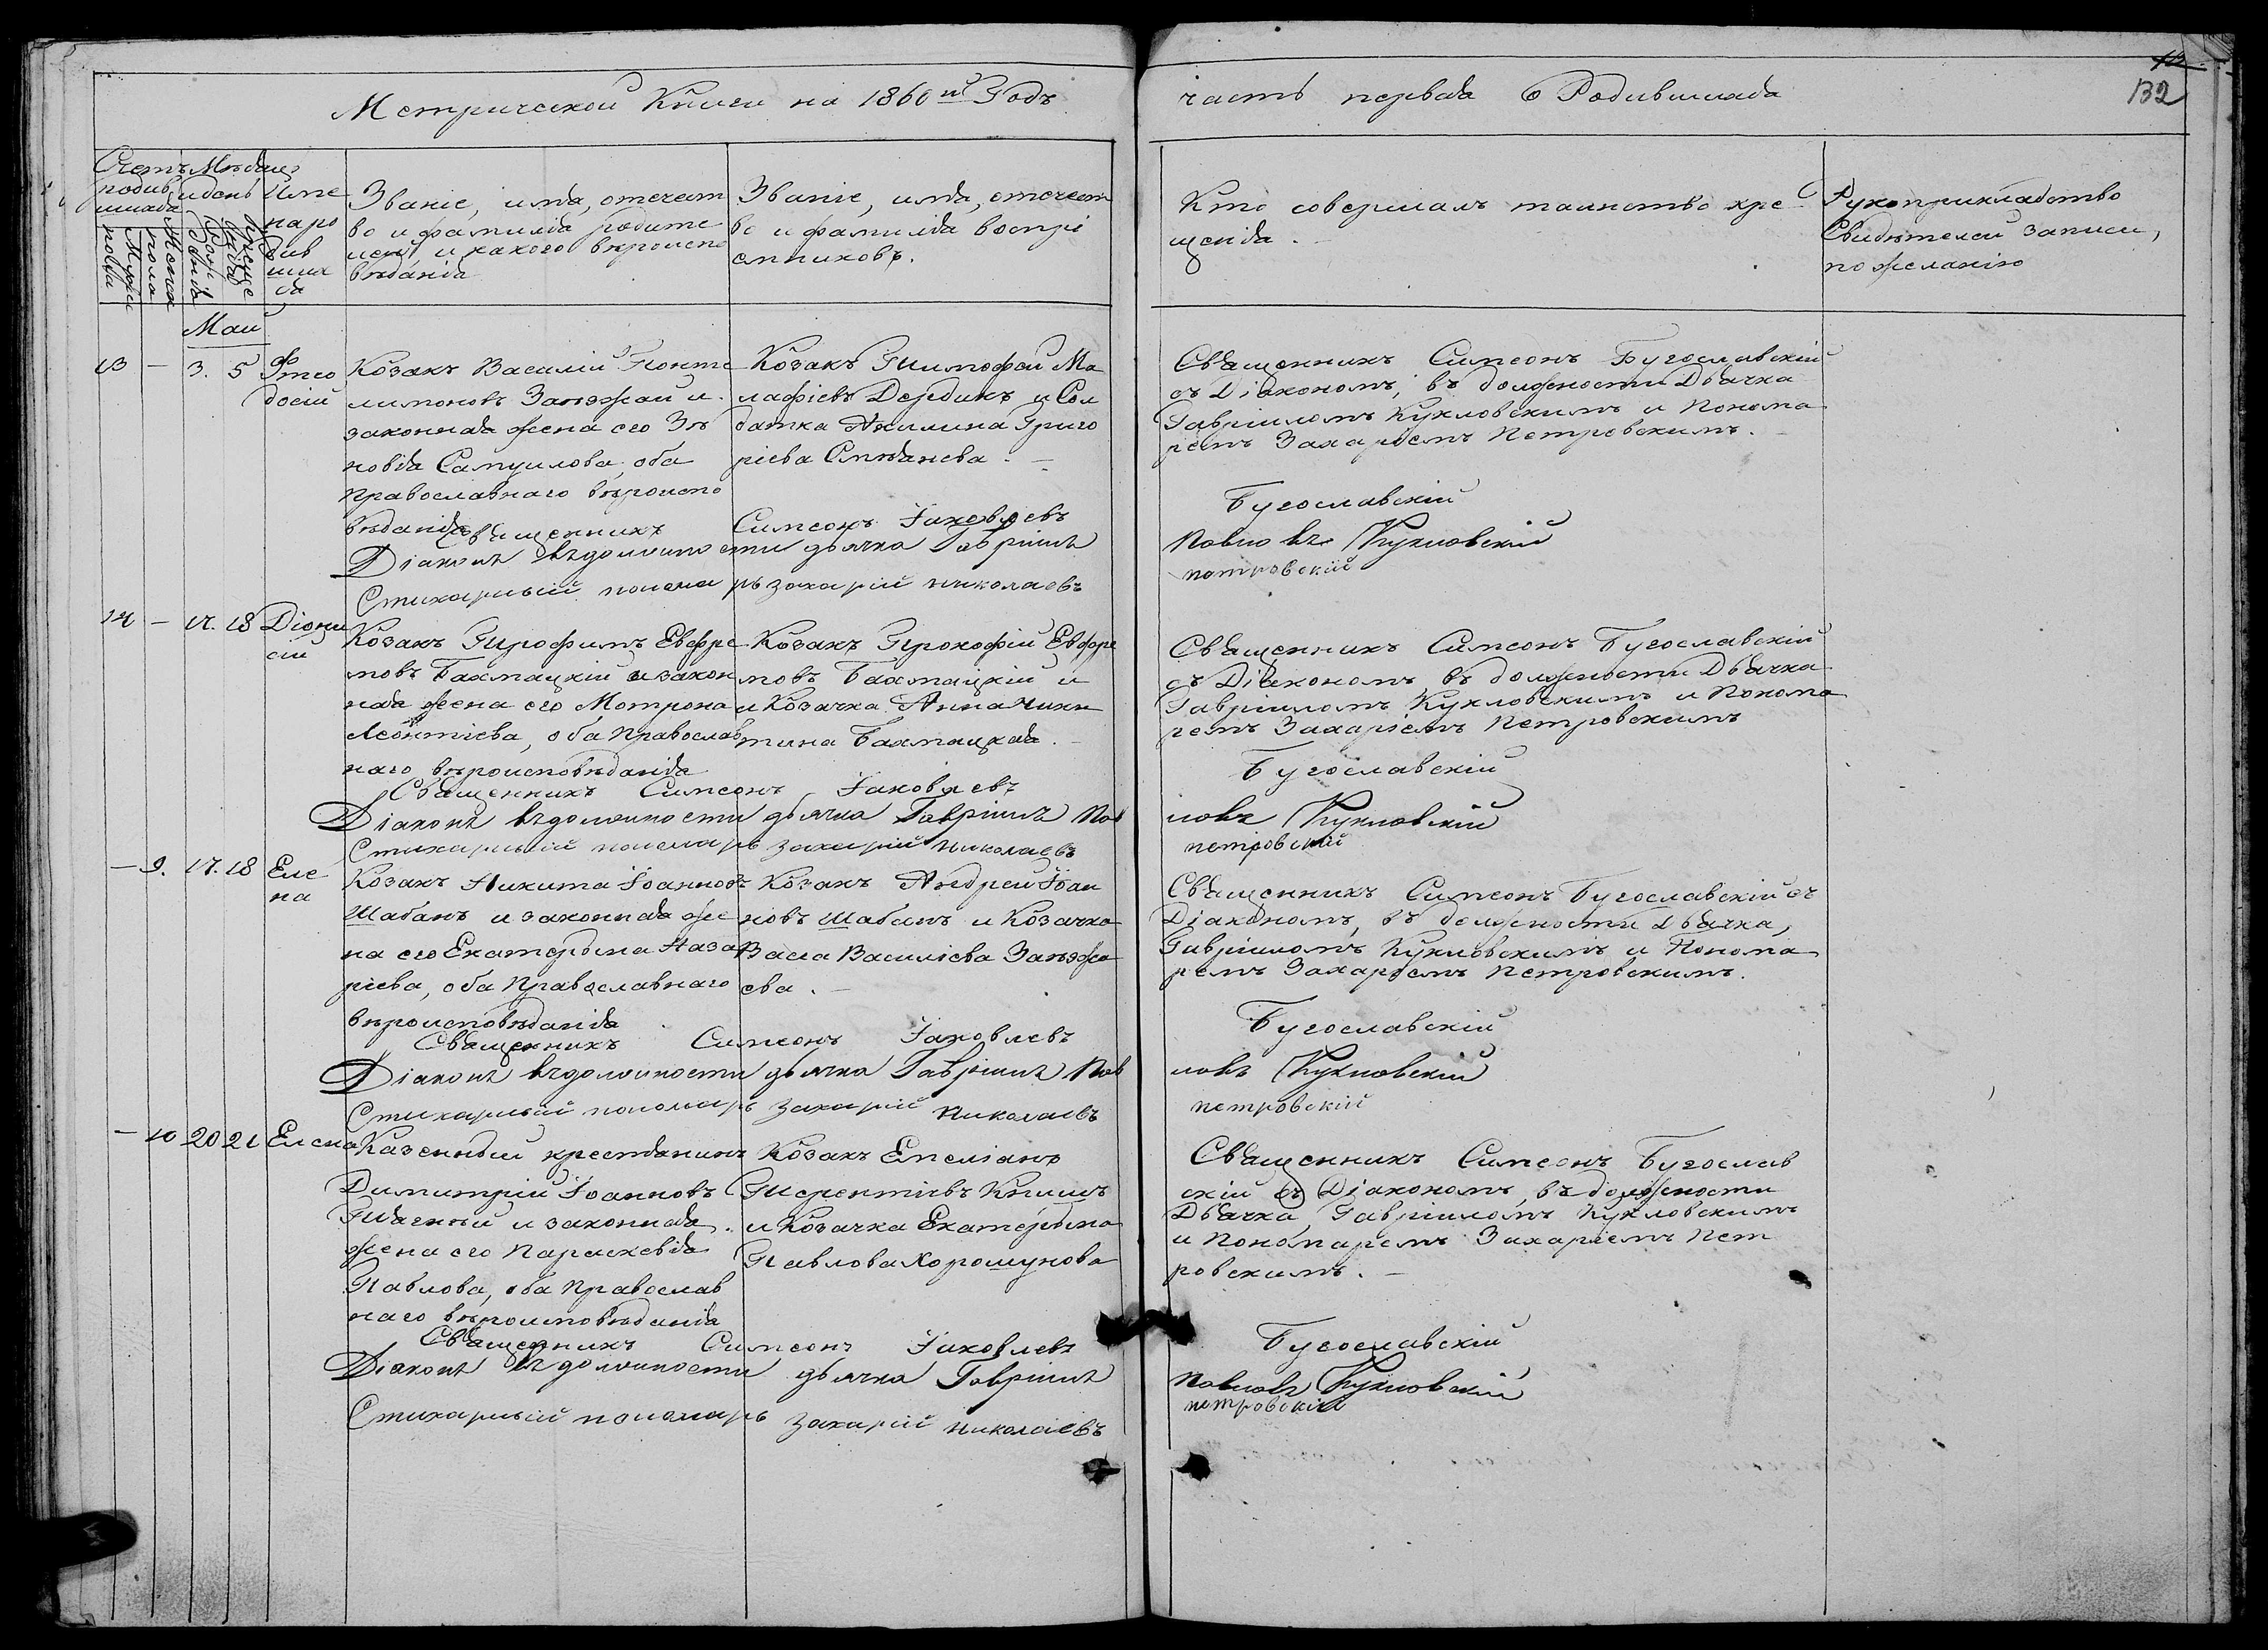 Метрической Книги на 1860й Годъ
часть первая о Родившихся
132
Счетъ родившихся
Мужеска пола
Женска пола
Мѣсяцъ и день
Рожденія
Крещенія
Имена родившихся
Званіе, имя, отечест
во и фамилія родите
лей, и какого вѣроиспо
вѣданія
Званіе, имя, отечест
во и фамилія воспрі
емниковъ.
Кто совершалъ таинство кре
щенія.
Рукоприкладство
Свидѣтелей записи,
по желанію
Май
13 — 3. 5 Ѳео
досій
Козакъ Василій Пантe
лимоновъ Занэжай и
законная жена его Зѣ
новія Самуилова, оба
Православнаго вѣроиспо
вѣданія
Козакъ Тимофей Ма
лафіевъ Дередикъ и Сол
датка Акилина Григо
ріева Смѣянева. —
Священникъ Симеонъ Бугославскій
съ Діакономъ, въ должности Дьячка
Гавріиломъ Кукловскимъ и Понома
ремъ Захаріемъ Петровскимъ.
Священникъ Симеонъ Іаковлевъ Бугославскій
Діаконъ въ должности дьячка Гавріилъ Павловъ Кукловскій
Стихарный пономарь Захарій Николаевъ Петровскій
14 — 17. 18 Діони
сій
Козакъ Трофимъ Евфре
мовъ Бахмацкій и закон
ная жена его Мотрона
Леонтіева, оба Православ
наго вѣроисповѣданія
Козакъ Прокофій Евфре
мовъ Бахмацкій и
и Козачка Анна Ники
тина Бахмацкая. —
Священникъ Симеонъ Бугославскій
съ Діакономъ въ должности Дьячка
Гавріиломъ Кукловскимъ и Понома
ремъ Захаріемъ Петровскимъ
Священникъ Симеонъ Іаковлевъ Бугославскій
Діаконъ въ должности дьячка Гавріилъ Павловъ Кукловскій
Стихарный пономарь Захарій Николаевъ Петровскій
— 9. 17. 18 Еле
на
Козакъ Никита Іоанновъ
Шабанъ и законная же
на его Екатерына Наза
ріева, оба Православнаго
вѣроисповѣданія
Козакъ Андрей Іоан
новъ Шабанъ и Козачка
Васса Василіева Занэжа
ева. —
Священникъ Симеонъ Бугославскій съ
Діакономъ, въ должности Дьячка,
Гавріиломъ Кукловскимъ и Понома
ремъ Захаріемъ Петровскимъ.
Священникъ Симеонъ Іаковлевъ Бугославскій
Діаконъ въ должности дьячка Гавріилъ Павловъ Кукловскій
Стихарный пономарь Захарій Николаевъ Петровскій
— 10 20 21 Елена
Казенный крестянинъ
Димитрій Іоанновъ
и законная
жена его Параскевія
Павлова, оба Православ
наго вѣроисповѣданія
Козакъ Емеліанъ
Терентіевъ Книшъ
и Козачка Екатерына
Павлова Хорошунова
Священникъ Симеонъ Бугослав
скій съ Діакономъ, въ должности
Дьячка, Гавріиломъ Кукловскимъ
и Пономаремъ Захаріемъ Пет
ровскимъ. —
Священникъ Симеонъ Іаковлевъ Бугославскій
Діаконъ въ должности дьячка Гавріилъ Павловъ Кукловскій
Стихарный пономарь Захарій Николаевъ Петровскій